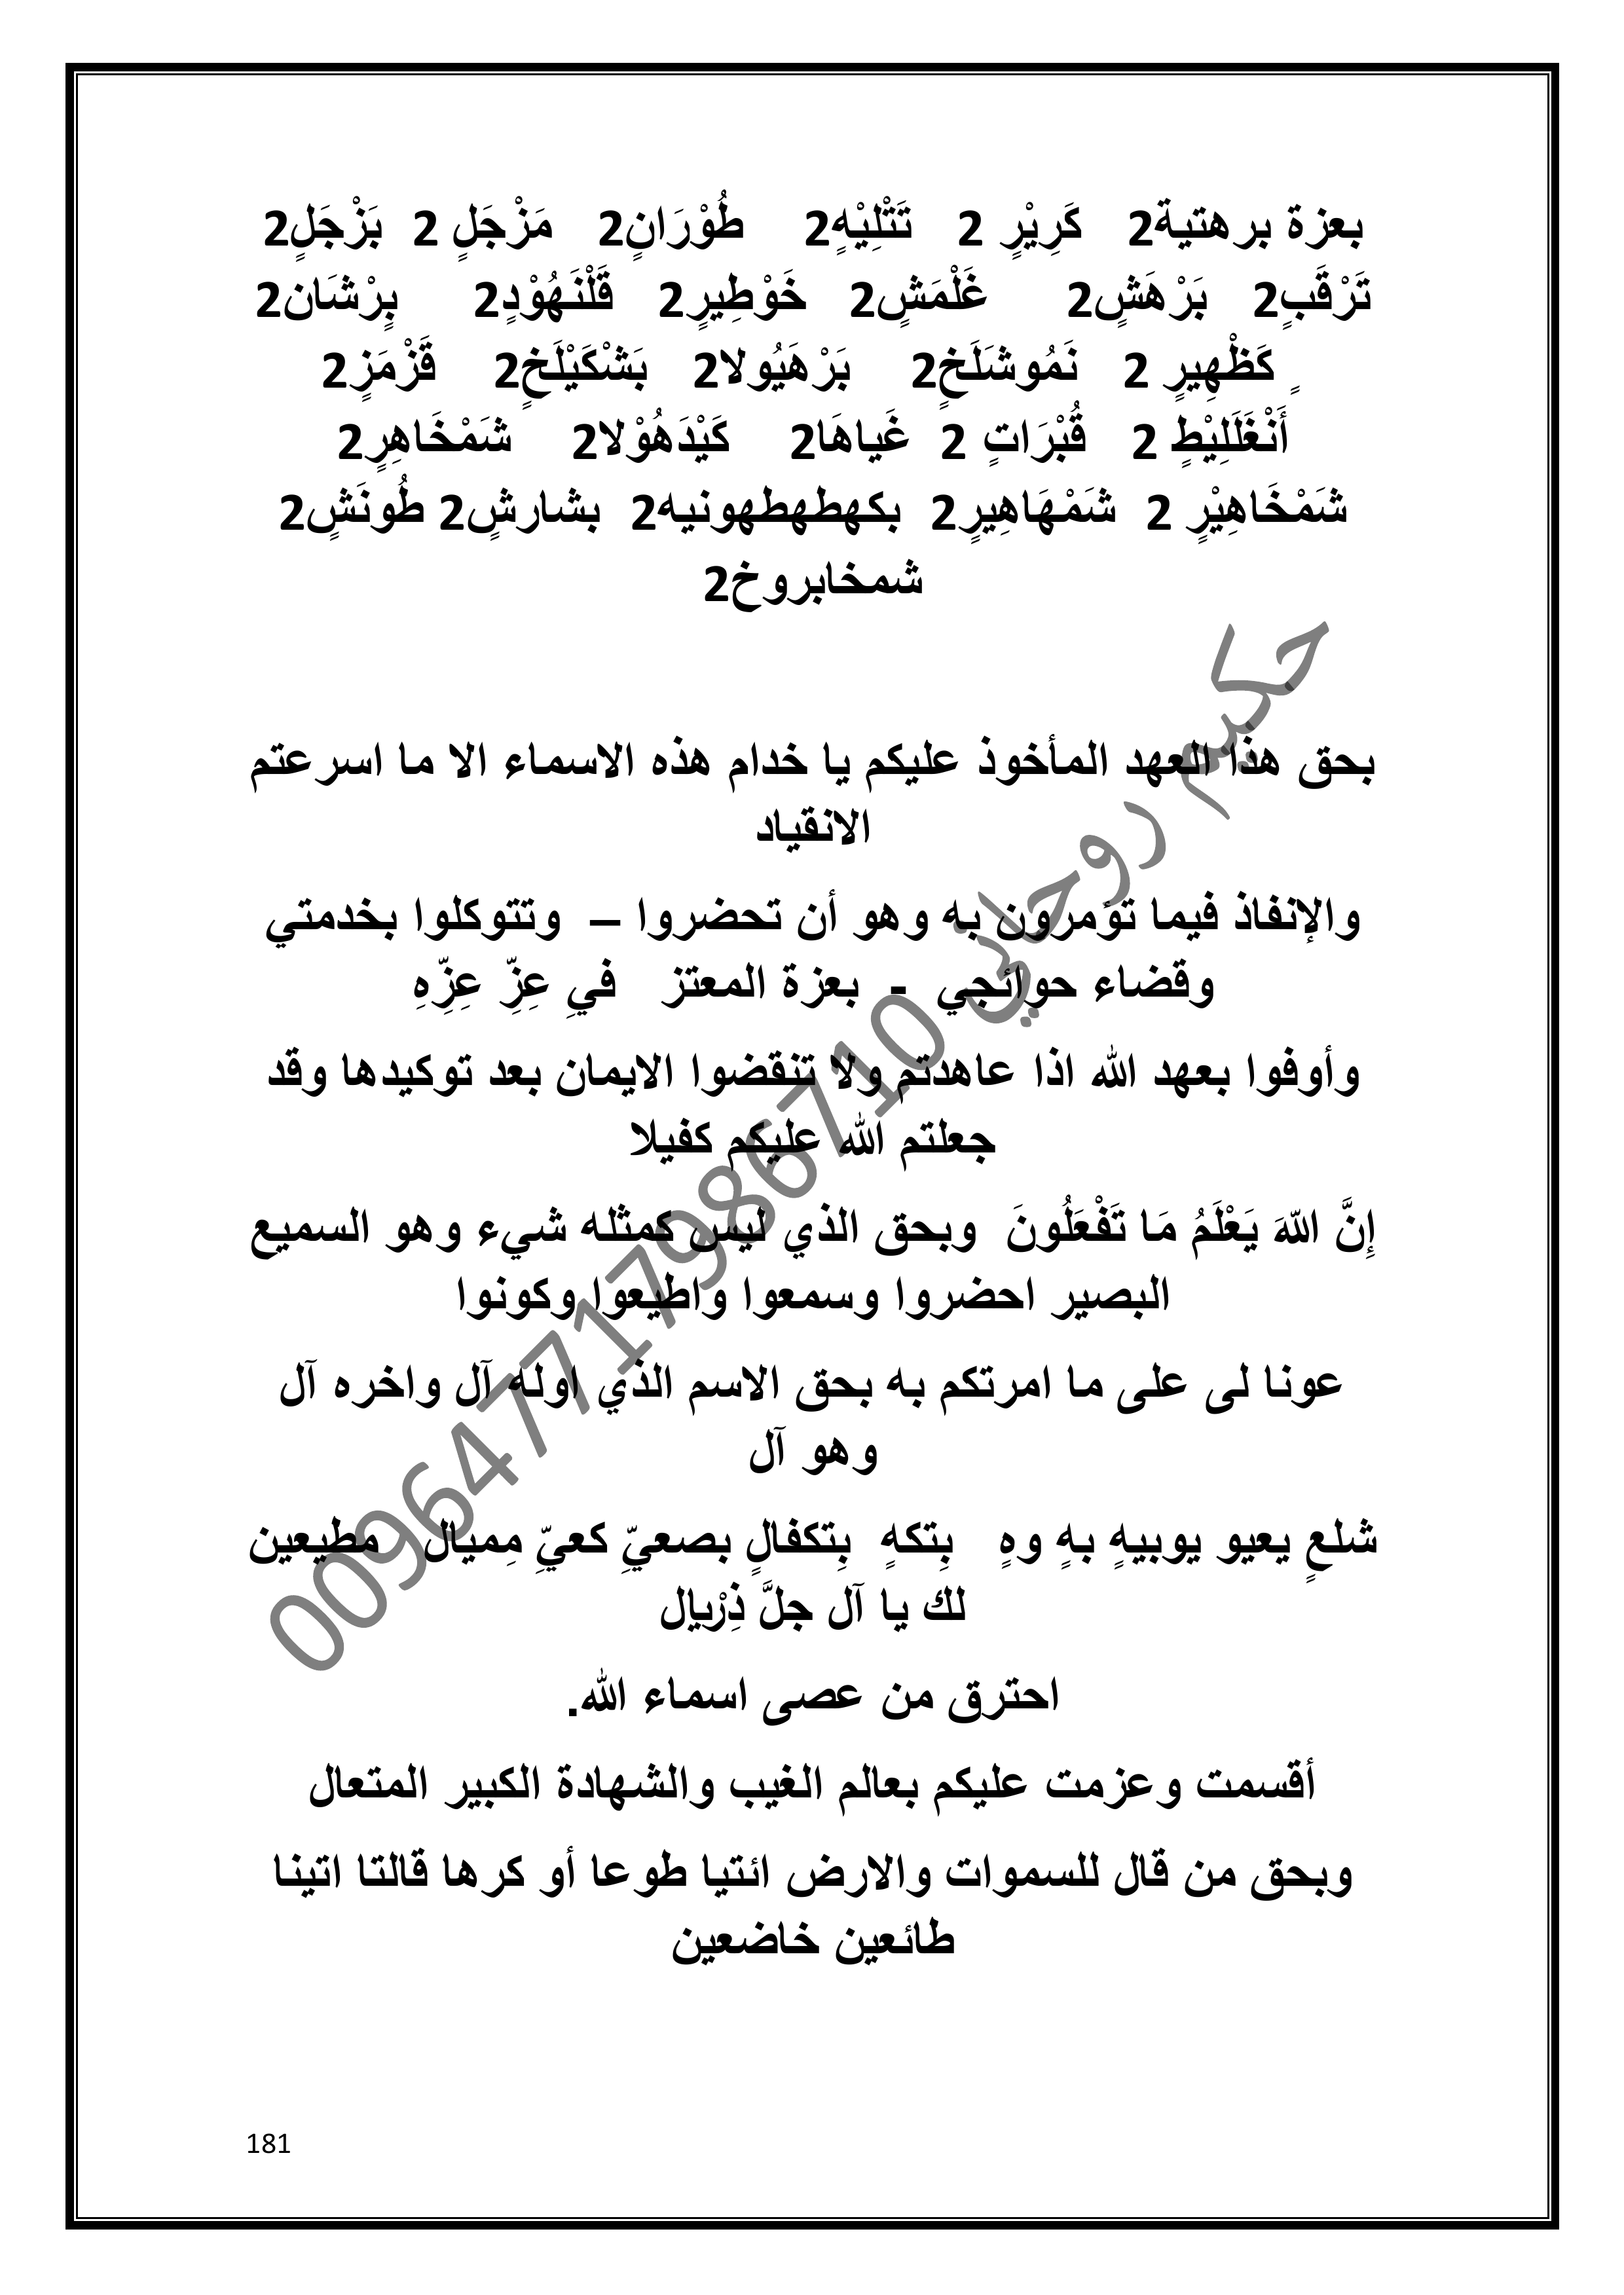 بعزة برهتية2 كَرِيْرٍ 2 تَتْلِيْهٍ2 طُوْرَانٍ2 مَزْجَلٍ 2 بَزْجَلٍ2
تَرْقَبٍ2 بَرْهَشٍ2 غَلْمَشٍ2 خَوْطِيرٍ2 قَلْنَهُوْدٍ2 بِرْشَان2
ٍ كَظْهِيرٍ 2 نَمُوشَلَخٍ2 بَرْهَيُولا2 بَشْكَيْلَخٍ2 قَزْمَزٍ2
أَنْغَلَلِيْطٍ 2 قُبْرَاتٍ 2 غَياهَا2 كَيْدَهُوْلا2 شَمْخَاهِرٍ2
شَمْخَاهِيْرٍ 2 شَمْهَاهِيرٍ2 بكهطهطهونيه2 بشارشٍ2 طُونَشٍ2
شمخابروخ2
بحق هذا العهد المأخوذ عليكم يا خدام هذه الاسماء الا ما اسرعتم
الانقياد
والإنفاذ فيما تؤمرون به وهو أن تحضروا – وتتوكلوا بخدمتي
وقضاء حوائجي - بعزة المعتز فيِ عِزِّ عِزِّهِ
وأوفوا بعهد الله اذا عاهدتم ولا تنقضوا الايمان بعد توكيدها وقد
جعلتم الله عليكم كفيلا
إِنَّ اللّهَ يَعْلَمُ مَا تَفْعَلُونَ وبحق الذي ليس كمثله شيء وهو السميع
البصير احضروا وسمعوا واطيعوا وكونوا
عونا لى على ما امرتكم به بحق الاسم الذي اوله آل واخره آل
وهو آل
شلعٍ يعيو يوبيهٍ بهٍ وهٍ بِتكهٍ بِتكفالٍ بصعيِّ كعيِّ مِميال مطيعين
لك يا آل جلَّ ذِرْيإل
احترق من عصى اسماء الله.
أقسمت وعزمت عليكم بعالم الغيب والشهادة الكبير المتعال
وبحق من قال للسموات والارض ائتيا طوعا أو كرها قالتا اتينا
طائعين خاضعين
حكيم روحاني 009647717986710
181